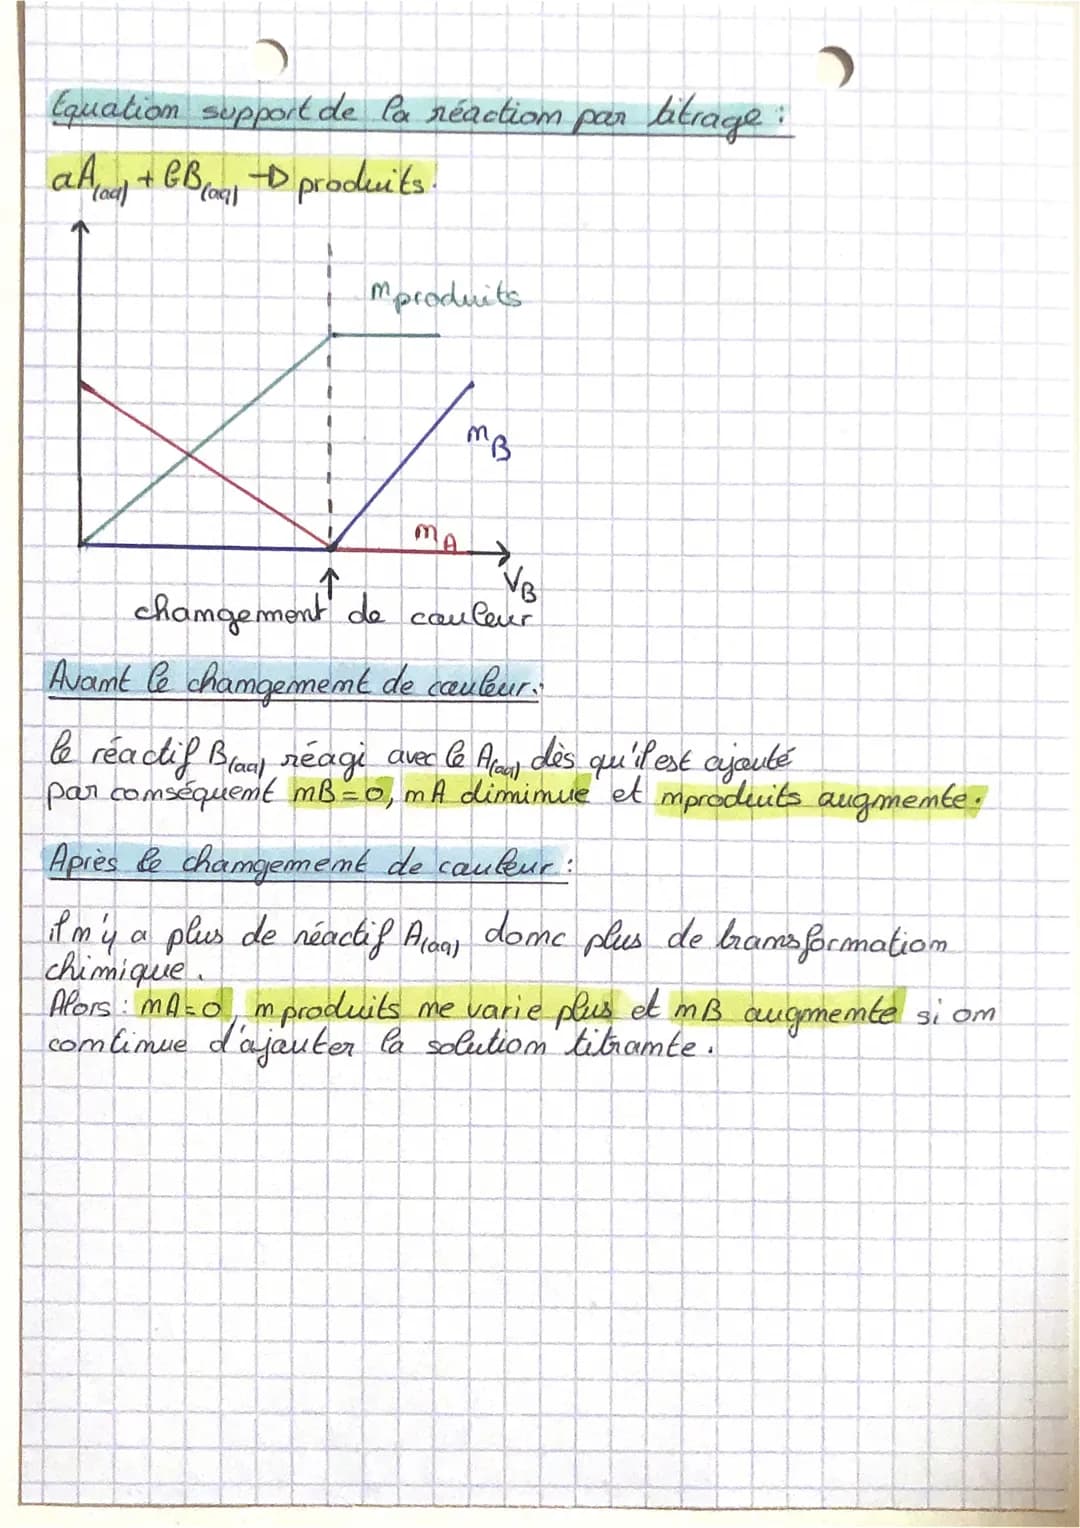 Equation support de la réaction par titrage :
aA(aq) + bB(aq) → produits.
n produits
nB
nA
VB
changement de couleur
Avant le changement de couleur :
le réactif B(aq) réagi avec le A(aq) dès qu'il est ajouté
par conséquent nB = 0, nA diminue et nproduits augmente.
Après le changement de couleur :
il n'y a plus de réactif A(aq) donc plus de transformation
chimique.
Alors : nA = 0, n produits ne varie plus et nB augmente si on
continue d'ajouter la solution titrante.